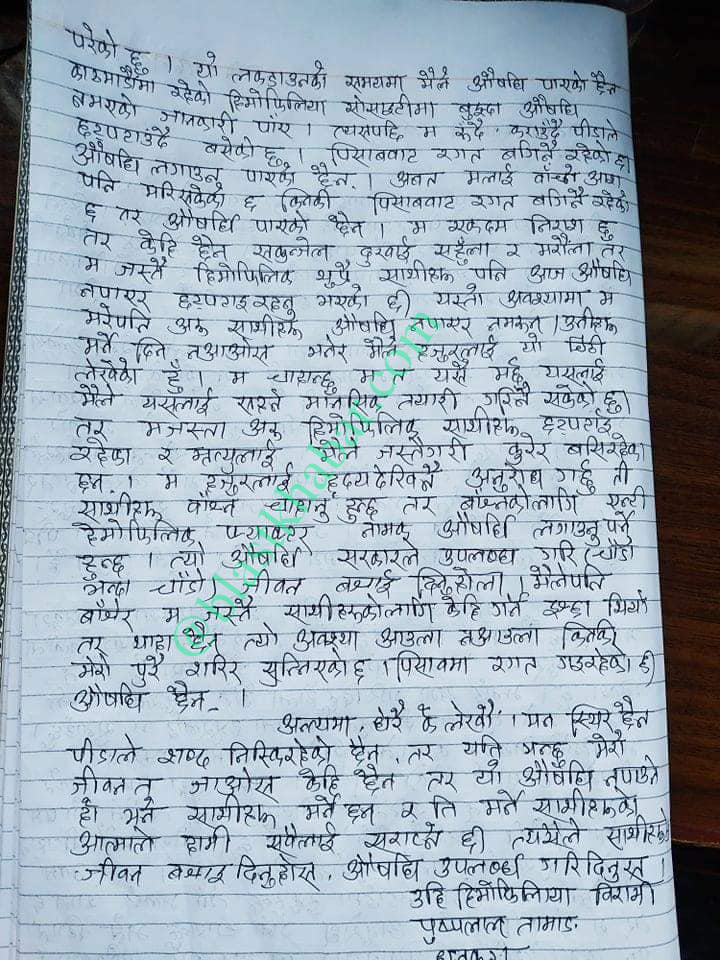 परेको छु । यो लकडाउनको समयमा मैले औषधि पाएको छैन
काठमाडौंमा रहेको हिमोफिलिया सोसाइटीमा बुझ्दा औषधि
नभएको जानकारी पाए । त्यसपछि म रुँदै कराउँदै पीडाले
छट्पटाउँदै बसेको छु । पिसाबबाट रगत बगिनै रहेको छ।
औषधि लगाउन पाएको छैन । अबत मलाई बाँच्ने आश
पनि मरिसकेको छ किनकी पिसाबबाट रगत बगिनै रहेको
छ तर औषधि पाएको छैन । म एकदम निराश छु
तर केहि छैन सकुन्जेल दुखाई सहँला र मरौला तर
म जस्तै हिमोफिलिक थुप्रै साथीहरु पनि आज औषधि
नपाएर छट्पटाइरहनु भएको छ। यस्तो अवस्थामा म
मरेपनि अरु साथीहरु औषधि नपाएर नमरुन् । उनीहरु
मर्ने दिन नआओस भनेर मैले हजुरलाई यो चिठी
लेखेको हुँ । म चाहन्छु म त यसै मर्छु यसलाई
मैले यसलाई सहने मानसिक तयारी गरिनै सकेको छु।
तर मजस्ता अरु हिमोफिलिक साथीहरु छट्पटाई
रहेका र मृत्युलाई मैले जस्तैगरी कुरेर बसिरहेका
छन् । म हजुरलाई हृदयदेखिनै अनुरोध गर्छु ती
साथीहरु बाँच्न चाहानु हुन्छ तर बाँच्नकोलागि एन्टी
हेमोफिलिक फ्याक्टर नामक औषधि लगाउनु पर्ने
हुन्छ । त्यो औषधि सरकारले उपलब्ध गरि चाँडो
भन्दा चाँडो जीवन बचाई दिनुहोला । मैलेपनि
बाँचेर म जस्तै साथीहरुकोलागि केहि गर्ने इच्छा थियो
तर थाहा छैन त्यो अवस्था आउला नआउला किनकी
मेरो पुरै शरिर सुन्निएको छ । पिसाबमा रगत गइरहेको छ।
औषधि छैन ।
अन्त्यमा, धेरै के लेखौं । मन स्थिर छैन
पीडाले शब्द निस्किरहेको छैन, तर यति भन्छु मेरो
जीवन त जाओस् केहि छैन तर यो औषधि नपाउने
हो भने साथीहरु मर्ने छन् र ति मर्ने साथीहरुको
आत्माले हामी सबैलाई सराप्ने छ। त्यसैले साथीहरुको
जीवन बचाइ दिनुहोस्, औषधि उपलब्ध गरिदिनुस् ।
उहि हिमोफिलिया विरामी
पुष्पलाल तामाङ
@blastkhabar.com